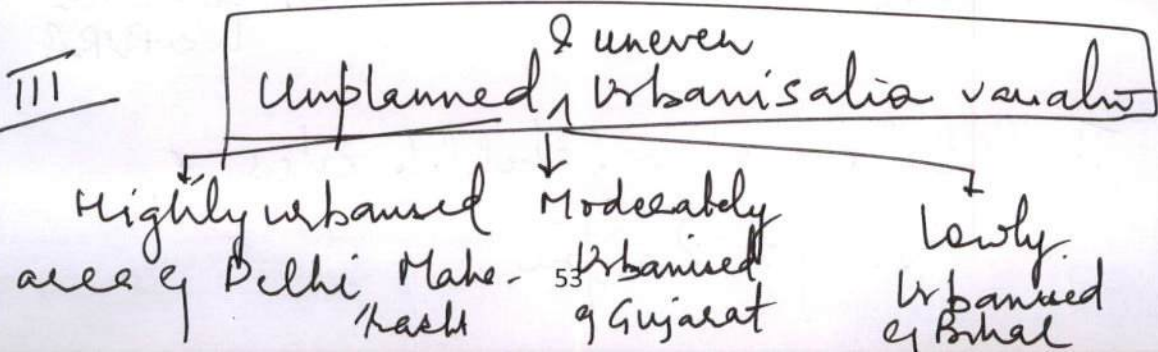 III
& uneven
Unplanned ∧ Urbanisation
Highly urbanised
area eg Delhi, Maha-
rasht
Moderately
Urbanised
eg Gujarat
Lowly
Urbanised
eg Bihar
53